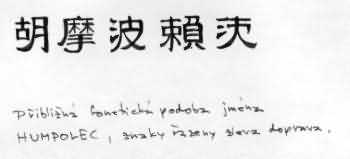 胡摩波賴茨
Přibližná fonetická podoba jména
HUMPOLEC, znaky řazeny zleva doprava.